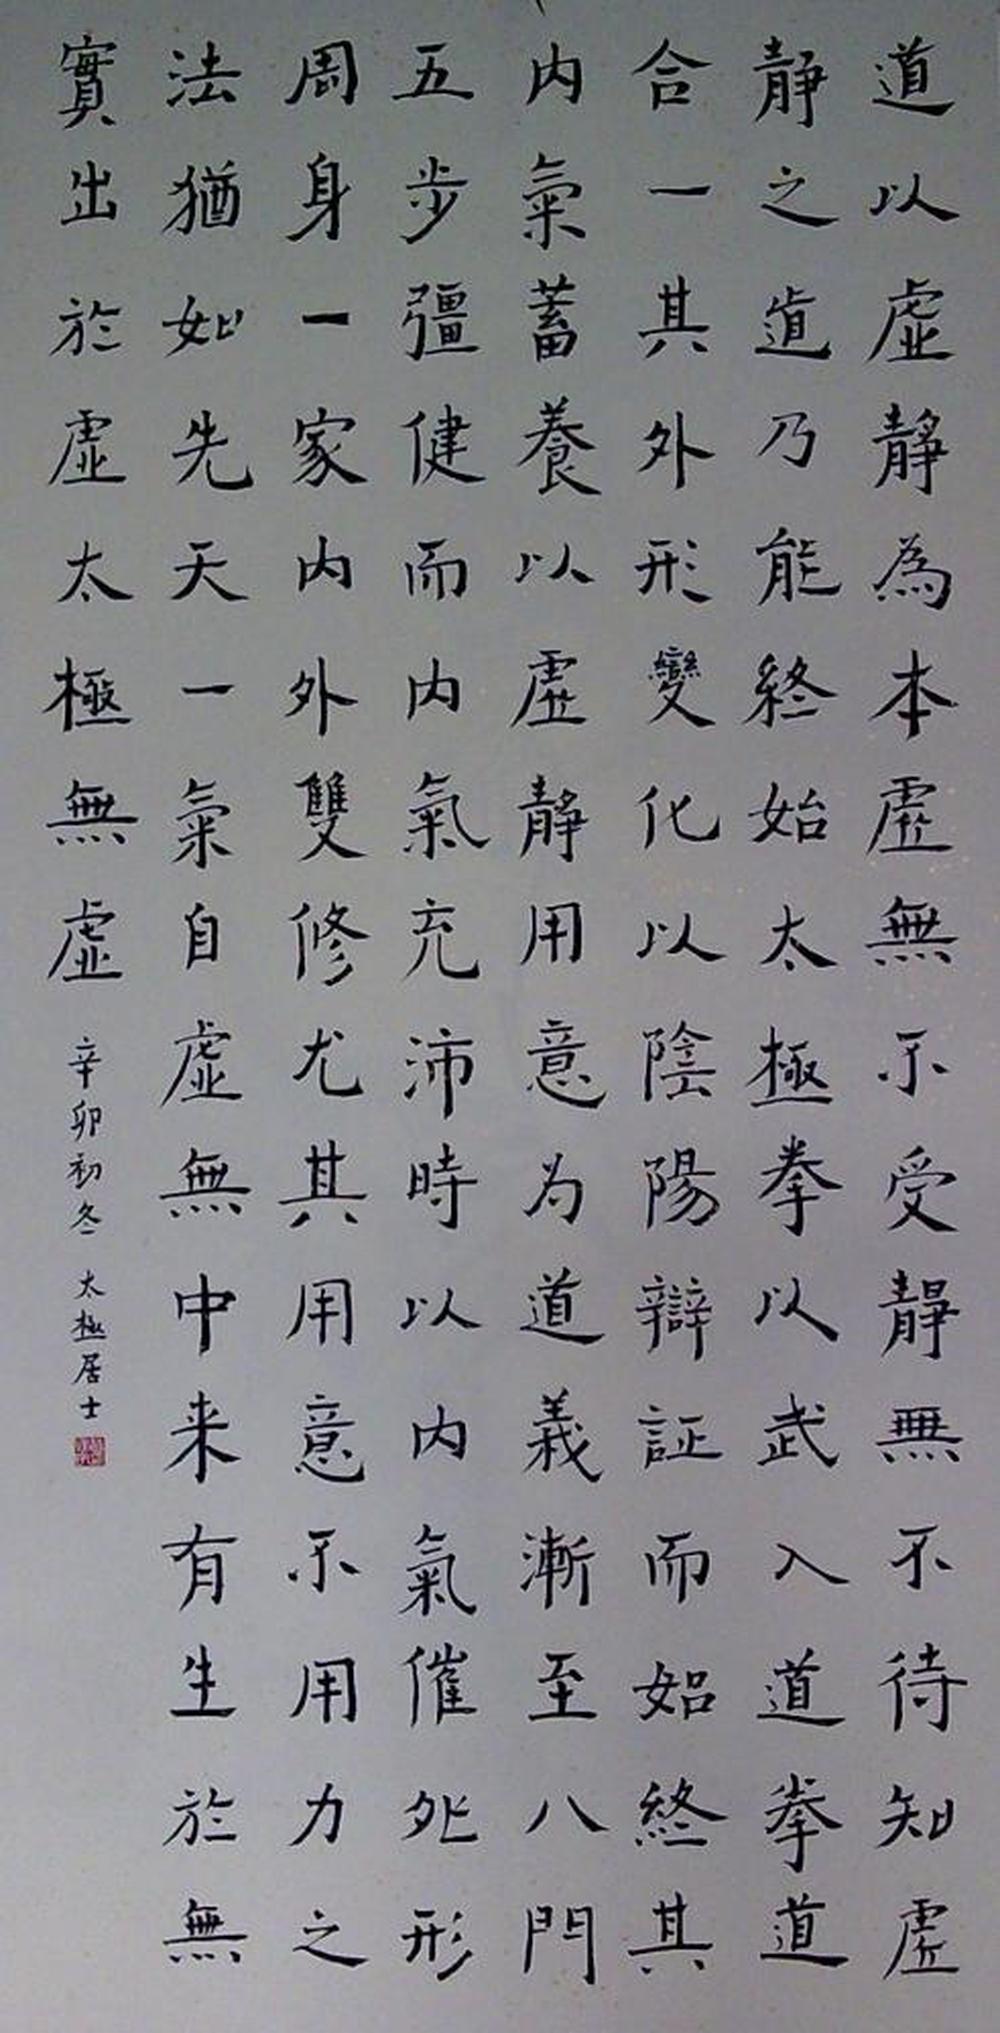 道以虛靜為本虛無不受靜無不待知虛
靜之道乃能終始太極拳以武入道拳道
合一其外形變化以陰陽辯証而如終其
內氣蓄養以虛靜用意为道義漸至八門
五步彊健而內氣充沛時以內氣催外形
周身一家內外雙修尤其用意不用力之
法猶如先天一氣自虛無中来有生於無
實出於虛太極無虛
辛卯初冬 太極居士